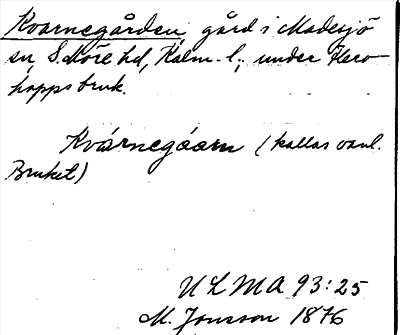 Kvarnegården, gård i Madesjö
sn, S. Möre hd, Kalm. l., under Hero-
hopps bruk.
Kvárnegåarn (kallas vanl.
Bruket)
ULMA 93:25
M. Jonsson 1876